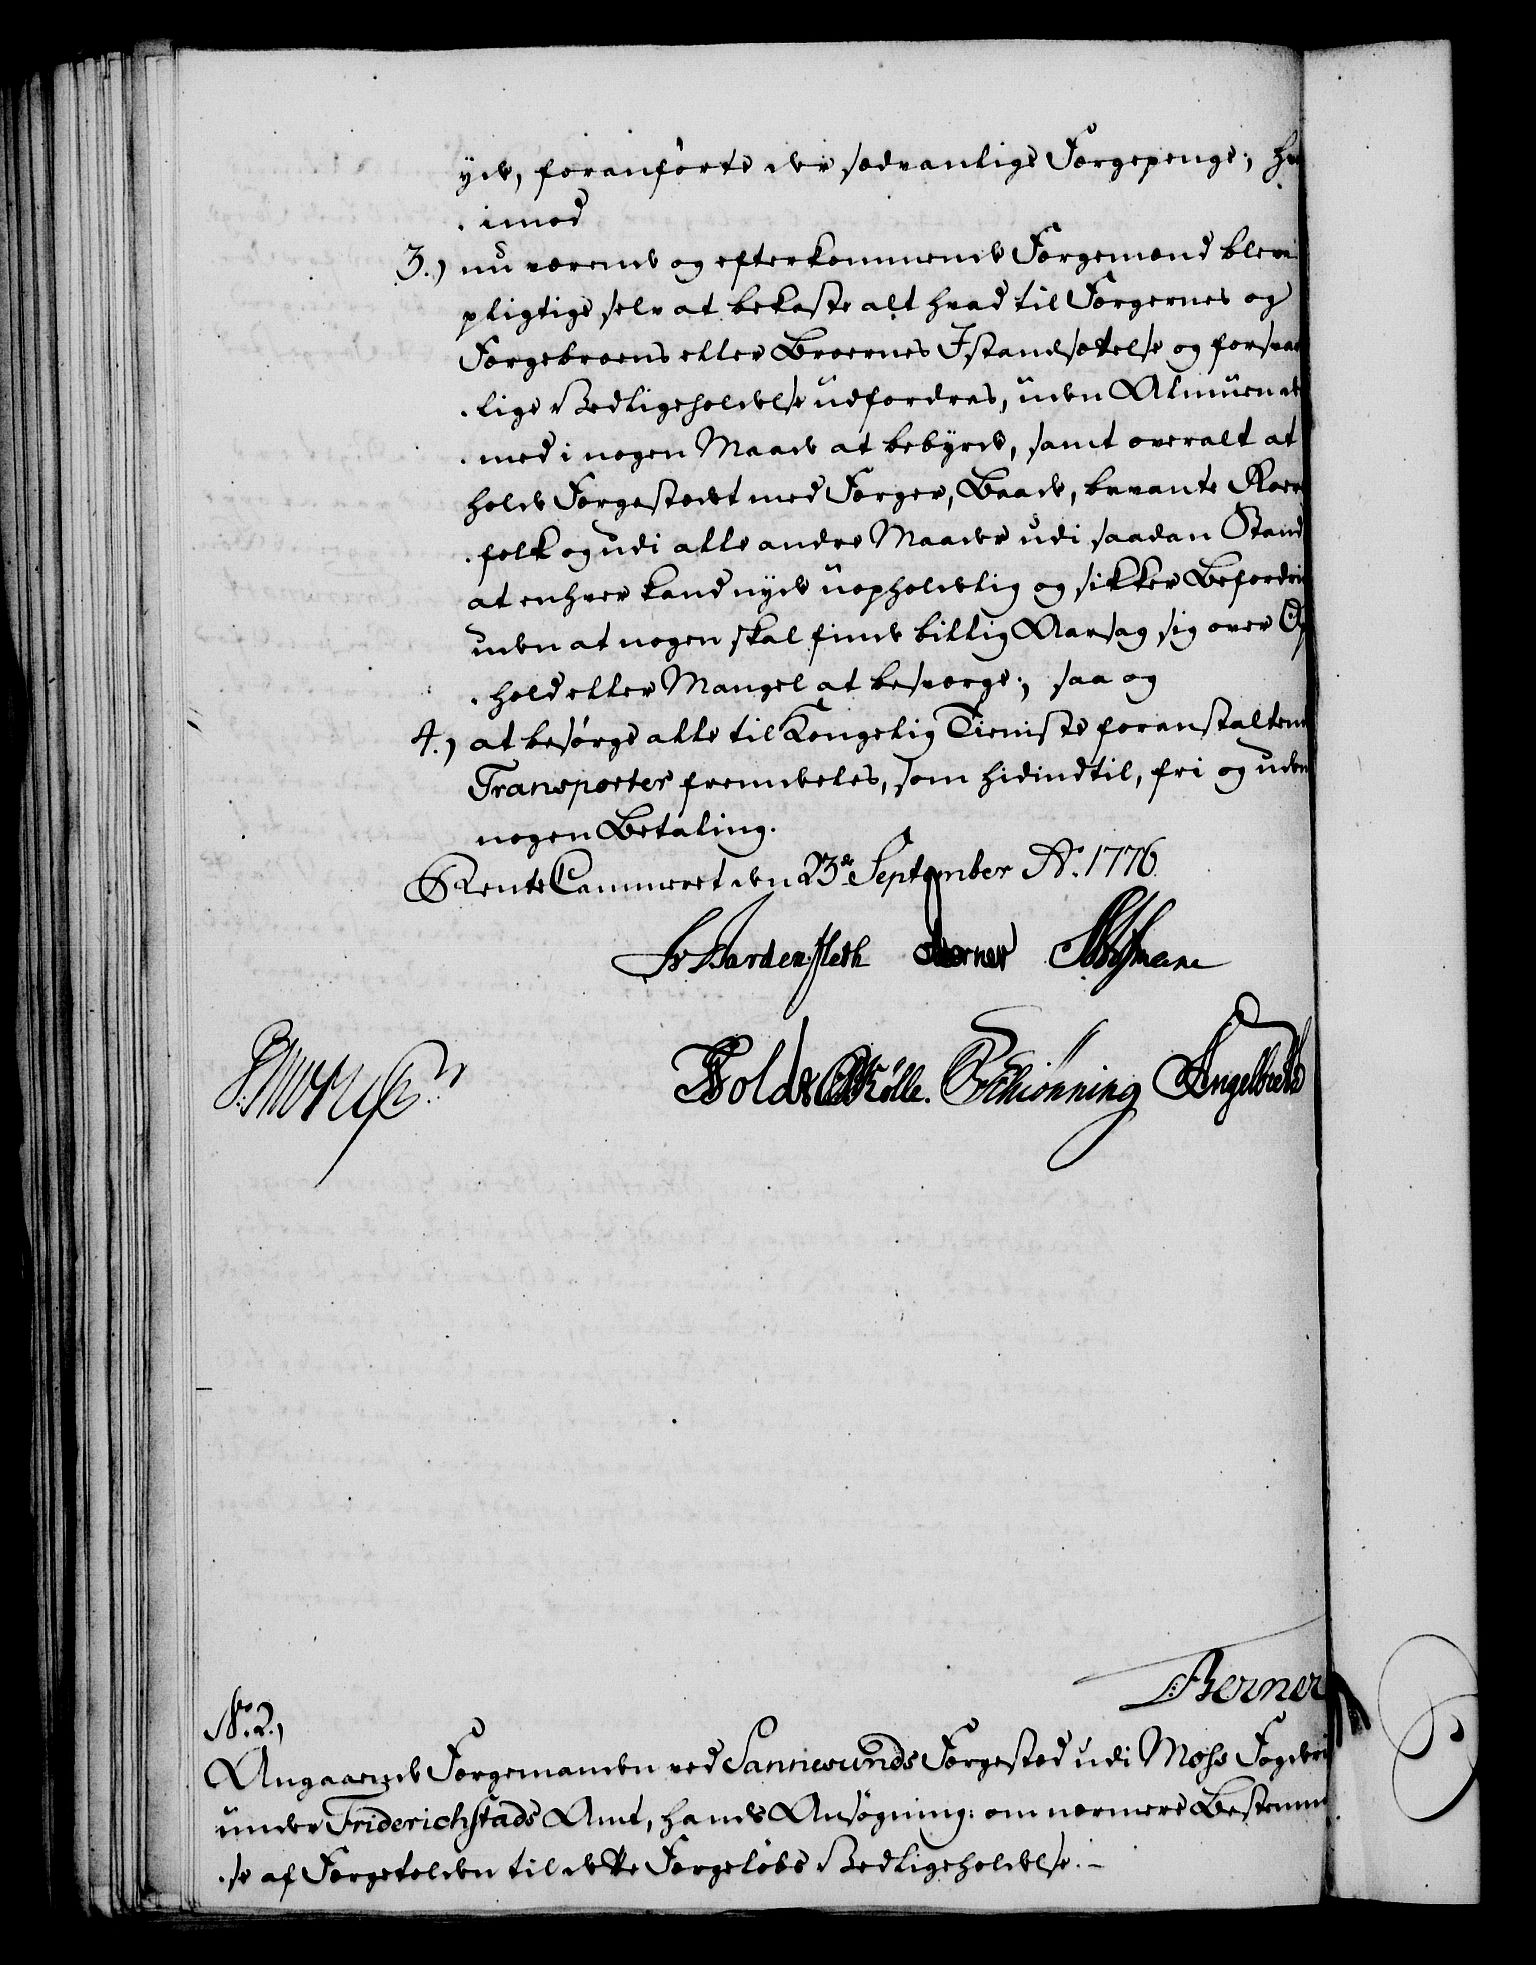 yde, foranførte der sædvanlige Færgepenge; he
. imod
3.) nu værende og efterkommende Færgemænd bleve
pligtige selv at bekoste alt hvad til Færgernes og
Færgebroens eller Broernes Istandsættelse og forsvar
. lige Vedligeholdelse udfordres, uden Almuen der
. med i nogen Maade at bebyrde, samt overalt at
holde Færgestædet med Færger, Baade, bevante Roers
. folk og udi alle andre Maader udi saadan Stand
at enhver kand nyde uopholdelig og sikker Befordri
uden at nogen skal finde billig Aarsag sig over Op
. hold eller Mangel at besværge; saa og
4.) at besørge alle til Kongelig Tieniste foranstaltende
Transporter fremdeles, som hidindtil, fri og uden
nogen Betaling.
RenteCammeret den 23de September Ao. 1776.
Bardenfleth Berner
Wolde Kölle. Schiönning Angelbeth
Berner
No. 2.,
Angaaende Færgemanden ved Sannesunds Færgestæd udi Mohs Fogderi
under Friderichstads Amt, hands Ansøgning: om nærmere Bestemm
. se af Færgetolden til dette Færgeløbs Vedligeholdelse. -